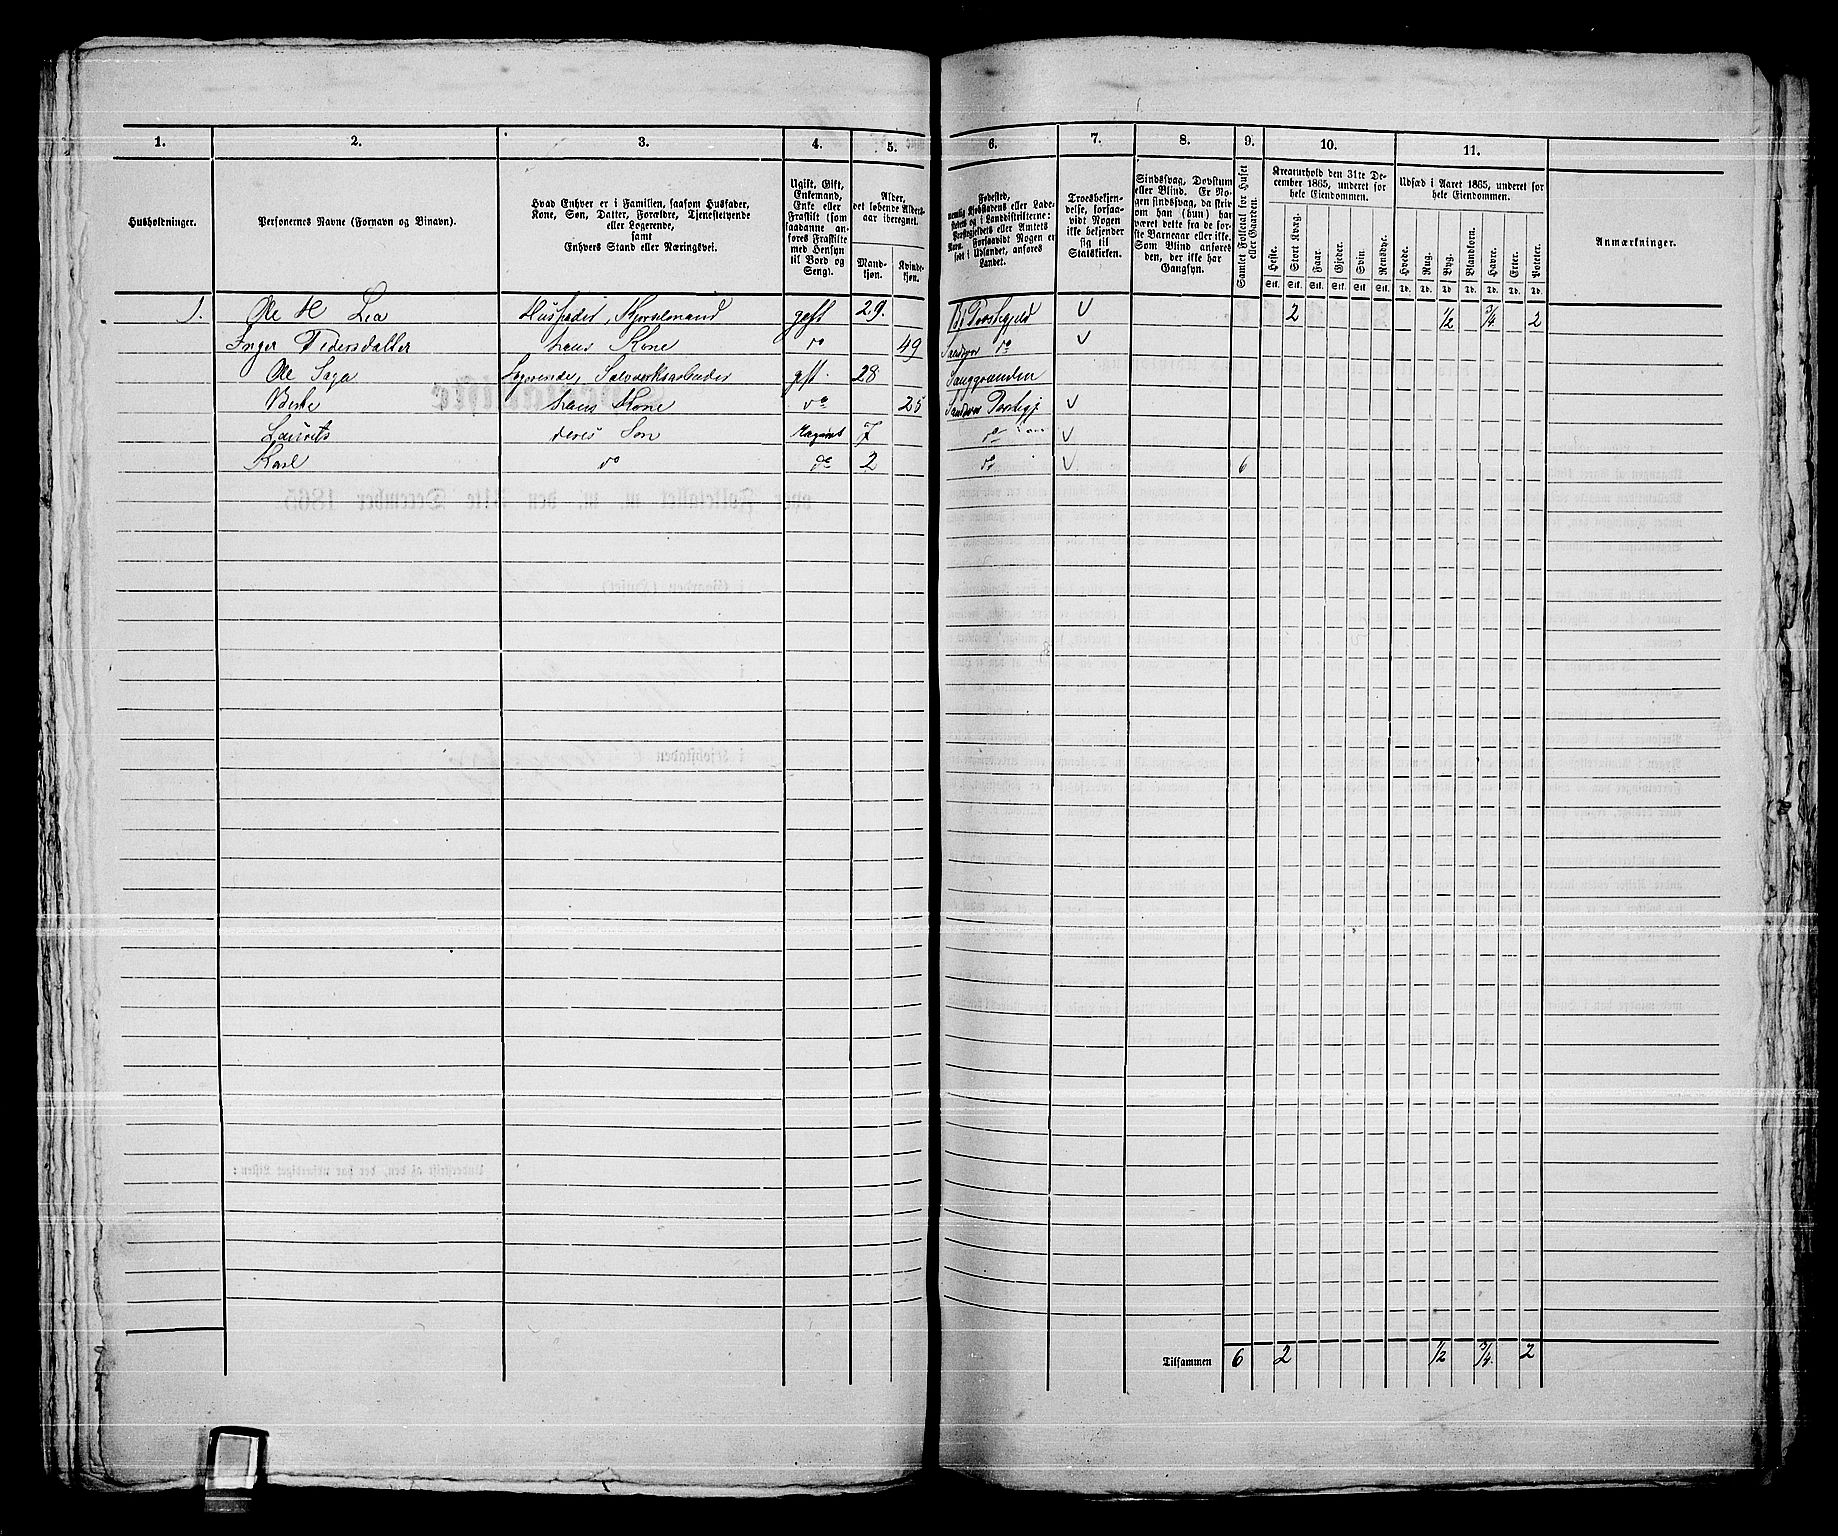 1. 2. 3. 4. 5. 6. 7. 8. 9. 10. 11.
Husholdninger.
Personernes Navne (Fornavn og Binavn).
Hvad Enhver er i Familien, saasom Husfader,
Kone, Søn, Datter, Forældre, Tjenestetyende
eller Logerende,
samt
Enhvers Stand eller Næringsvei.
Ugift, Gift,
Enkemand,
Enke eller
Fraskilt (som
saadanne anføres
Fraskilte
med Hensyn
til Bord og
Seng).
Alder,
det løbende Aldersaar
iberegnet.
Mandkjøn.
Kvindekjøn.
Fødested,
nemlig Kjøbstadens eller Ladestedets
og i Landdistrikterne:
Præstegjeldets eller Amtets
Navn. Forsaavidt Nogen er
født i Udlandet, anføres
Landet.
Troesbekjendelse,
forsaavidt
Nogen
ikke bekjender
sig til
Statskirken.
Sindssvag, Døvstum
eller Blind. Er Nogen
sindssvag, da skrives
om han (hun) har
været dette fra de første
Barneaar eller ikke.
Som Blind anføres
den, der ikke har
Gangsyn.
Samlet Folketal for Huset
eller Gaarden.
Kreaturhold den 31te December
1865, underet for
hele Eiendommen.
Heste. Stort Kvæg. Faar. Gjeder. Svin. Rensdyr.
Stk. Stk. Stk. Stk. Stk. Stk.
Udsæd i Aaret 1865, underet for
hele Eiendommen.
Hvede. Rug. Byg. Blandkorn. Havre. Erter. Poteter.
Td. Td. Td. Td. Td. Td. Td.
Anmærkninger.
1. Ole H Lia Husfader, gift 29. V 2 1/2 3/4 2
Inger Pedersdatter hans Kone do 49 Sandsvær do V
Ole Saga Logerende, Sølvverksarbeider gift 28
Berte hans Kone do 25 Sandsvær V
Laurits deres Søn 7 do V
Karl do do 2 do V 6
Tilsammen 6 2 1/2 3/4 2